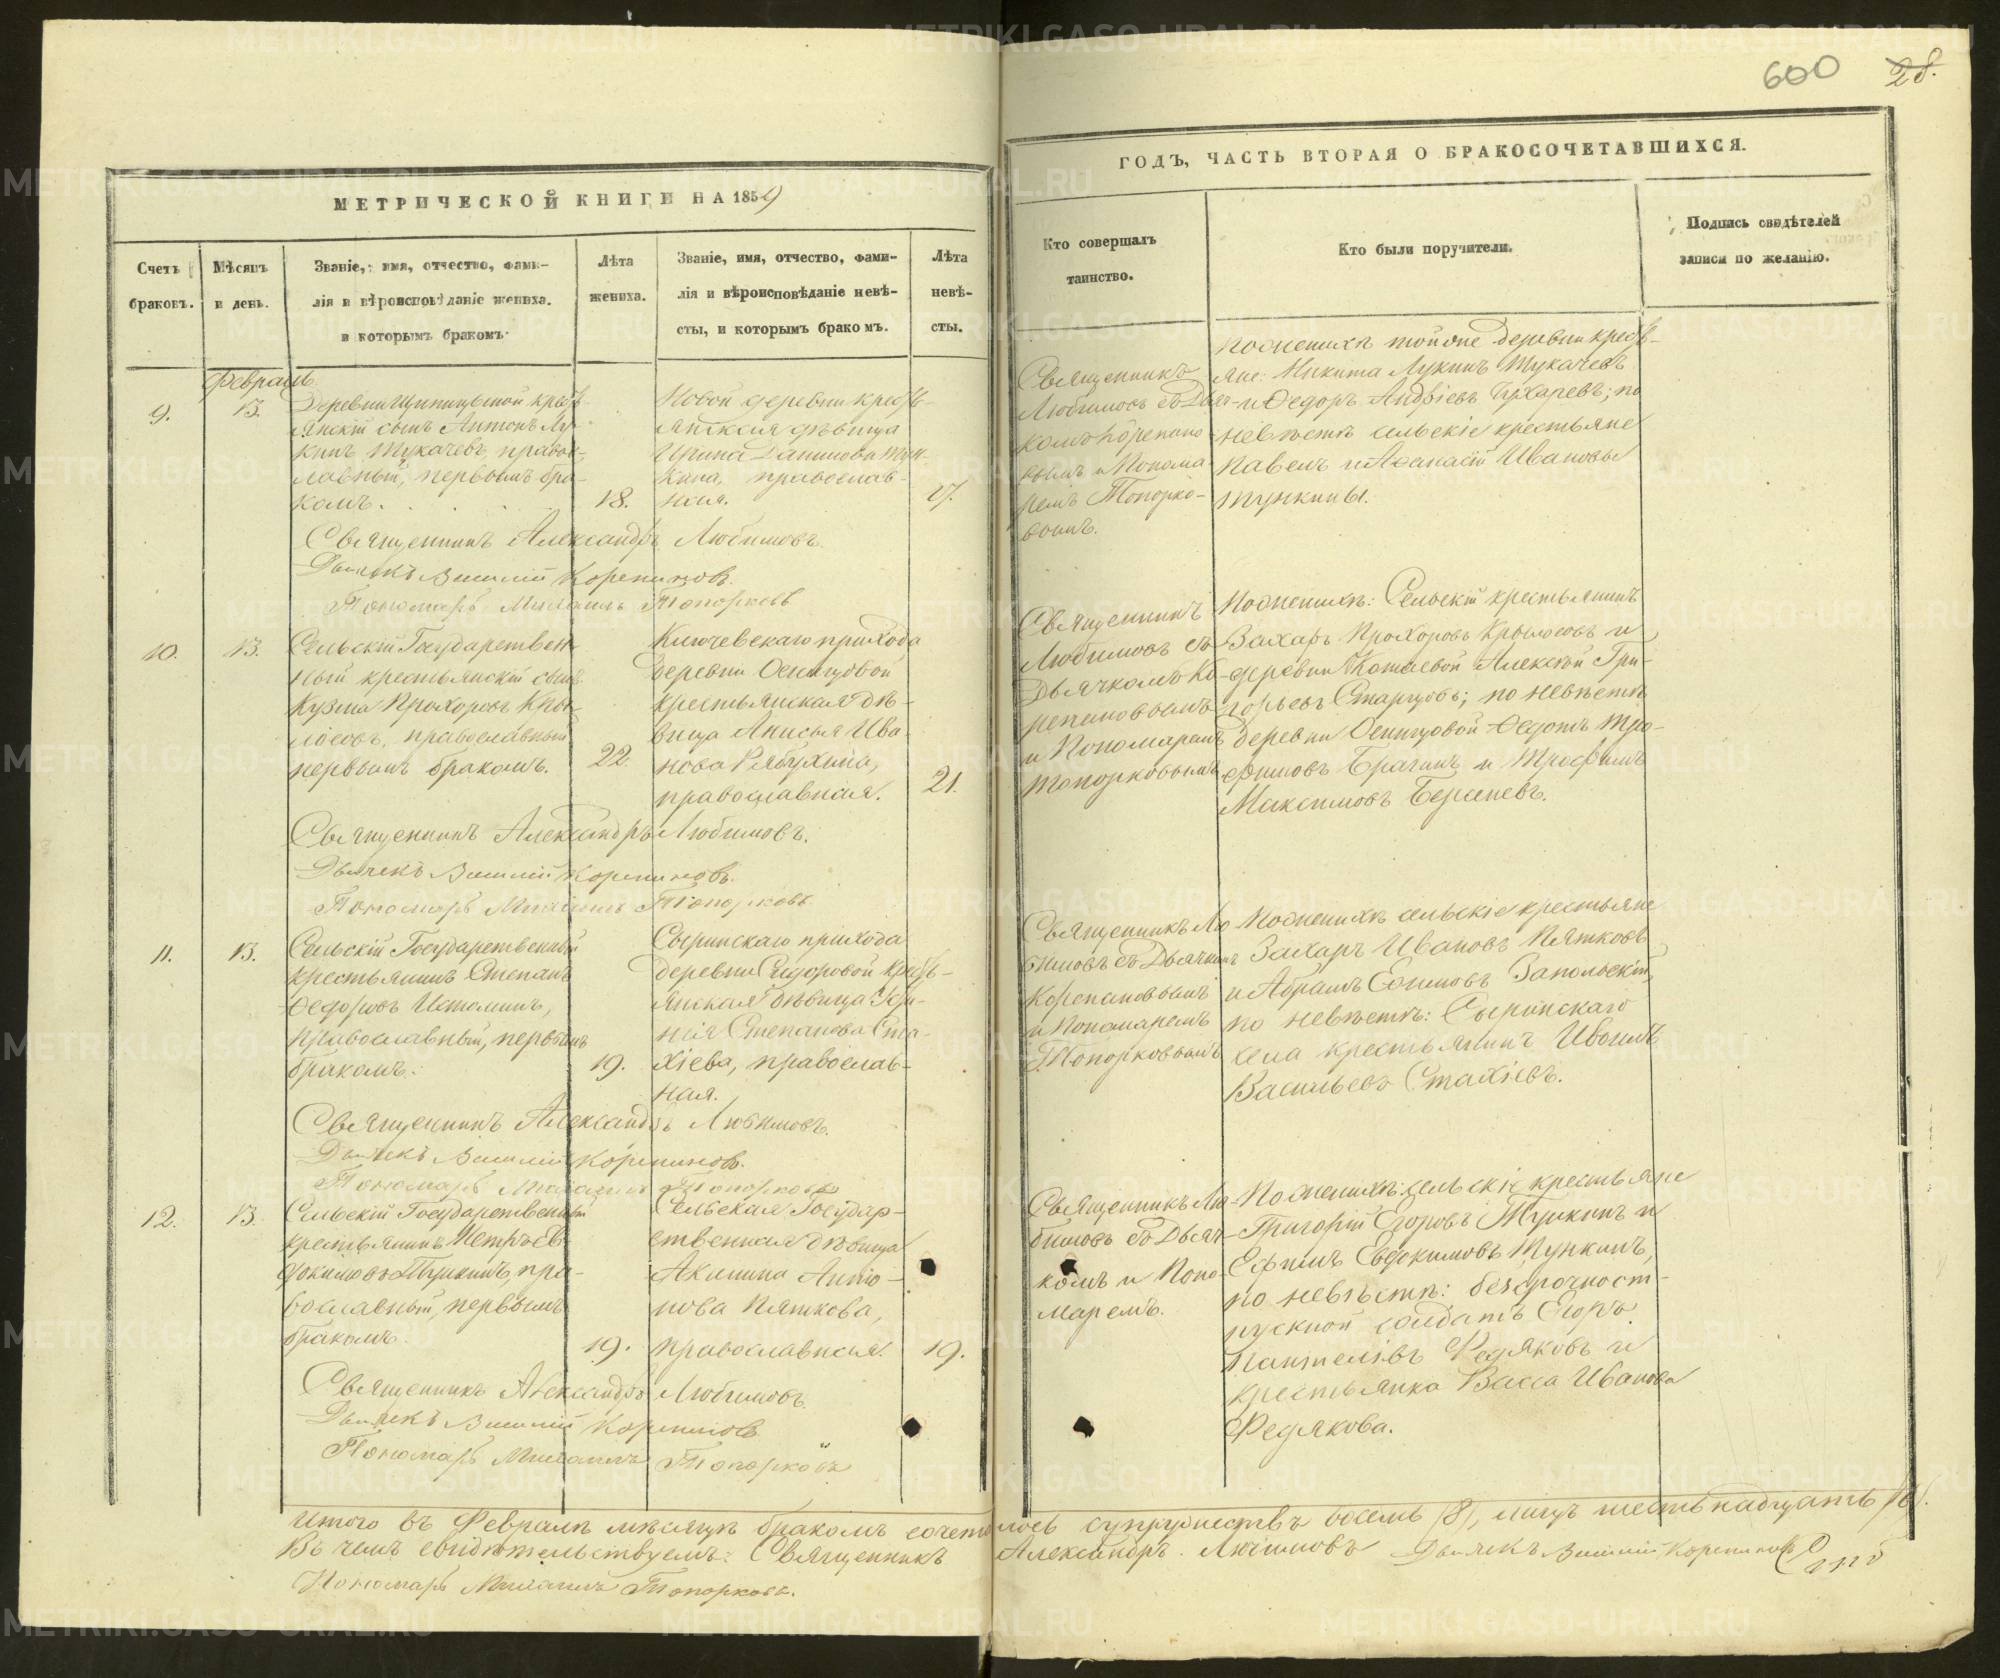 600
28.
МЕТРИЧЕСКОЙ КНИГИ НА 1859
ГОДЪ, ЧАСТЬ ВТОРАЯ О БРАКОСОЧЕТАВШИХСЯ.
Счетъ браковъ.
Мѣсяцъ и день.
Званіе, имя, отчество, фами-
лія и вѣроисповѣданіе жениха.
и которымъ бракомъ
Лѣта
жениха.
Званіе, имя, отчество, фами-
лія и вѣроисповѣданіе невѣ-
сты, и которымъ бракомъ.
Лѣта
невѣ-
сты.
Кто совершалъ
таинство.
Кто были поручители.
Подпись свидѣтелей
записи по желанію.
Февраль
9.
13.
Деревни крестъ-
янскій сынъ Антонъ Лу-
кинъ Тукачевъ, правос-
лавный, первымъ бра-
комъ.
18.
Новой деревни кресть-
янская дѣвица
Ирина Данилова Тун-
кина, православ-
ная.
17.
Священникъ
Любимовъ съ Дьяч-
комъ Корепано-
вымъ и Понома-
ремъ Топорко-
вымъ.
По женихѣ той же деревни кресть-
яне: Никита Лукинъ Тукачевъ
и Федоръ Андріевъ Бухаревъ; по
невѣстѣ сельскіе крестьяне
Павелъ и Афанасій Ивановы
Тункины.
Священникъ Александръ Любимовъ.
Дьячекъ Василій Корепановъ.
Пономарь Михаилъ Топорковъ
10.
13.
Сельскій Государствен-
ный крестьянскій сынъ
Кузма Прохоровъ Кры-
лосовъ, православный
первымъ бракомъ.
22.
Ключевскаго прихода
деревни Осинцовой
крестьянская дѣ-
вица Анисья Ива-
нова Рябухина,
православная.
21.
Священникъ
Любимовъ съ
Дьячкомъ Ко-
репановымъ
и Пономаремъ
Топорковымъ
По женихѣ: Сельскій крестьянинъ
Захаръ Прохоровъ Крылосовъ и
деревни Алексѣй Гри-
горьевъ Старцовъ; по невѣстѣ
деревни Осинцовой Федотъ Тро-
фимовъ Брагинъ и Трофимъ
Максимовъ Берсеневъ.
Священникъ Александръ Любимовъ.
Дьячекъ Василій Корепановъ.
Пономарь Михаилъ Топорковъ
11.
13.
Сельскій Государственный
крестьянинъ Степанъ
Федоровъ Истоминъ,
православный, первымъ
бракомъ.
19.
Сыринскаго прихода
деревни Сидоровой кресть-
янская дѣвица
Степанова Ста-
хіева, православ-
ная.
Священникъ Лю-
бимовъ съ Дьячкомъ
Корепановымъ
и Пономаремъ
Топорковымъ
По женихѣ сельскіе крестьяне
Захаръ Ивановъ Пятковъ
и Абрамъ Ефимовъ Запольскій,
по невѣстѣ: Сыринскаго
села крестьянинъ
Васильевъ Стахіевъ.
Священникъ Александръ Любимовъ.
Дьячекъ Василій Корепановъ.
Пономарь Михаилъ Топорковъ
12.
13.
Сельскій Государственный
крестьянинъ Петръ Ев-
докимовъ Тункинъ, пра-
вославный, первымъ
бракомъ.
19.
Сельская Государ-
ственная дѣвица
Акилина Анто-
нова Пяткова,
православная.
19.
Священникъ Лю-
бимовъ съ Дьяч-
комъ и Поно-
маремъ.
По женихѣ: сельскіе крестьяне
Григорій Егоровъ Тункинъ и
Ефимъ Евдокимовъ Тункинъ,
по невѣстѣ: безсрочноот-
пускной солдатъ Егоръ
Пантелѣевъ Федяковъ и
крестьянка Васса Иванова
Федякова.
Священникъ Александръ Любимовъ.
Дьячекъ Василій Корепановъ
Пономарь Михаилъ Топорковъ
Итого въ Февралѣ мѣсяцѣ бракомъ сочеталось супружествъ восемь /8/, лицъ шестьнадцать /16/.
Въ чемъ свидѣтельствуемъ: Священникъ Александръ Любимовъ Дьячекъ Василій Корепановъ
Пономарь Михаилъ Топорковъ.